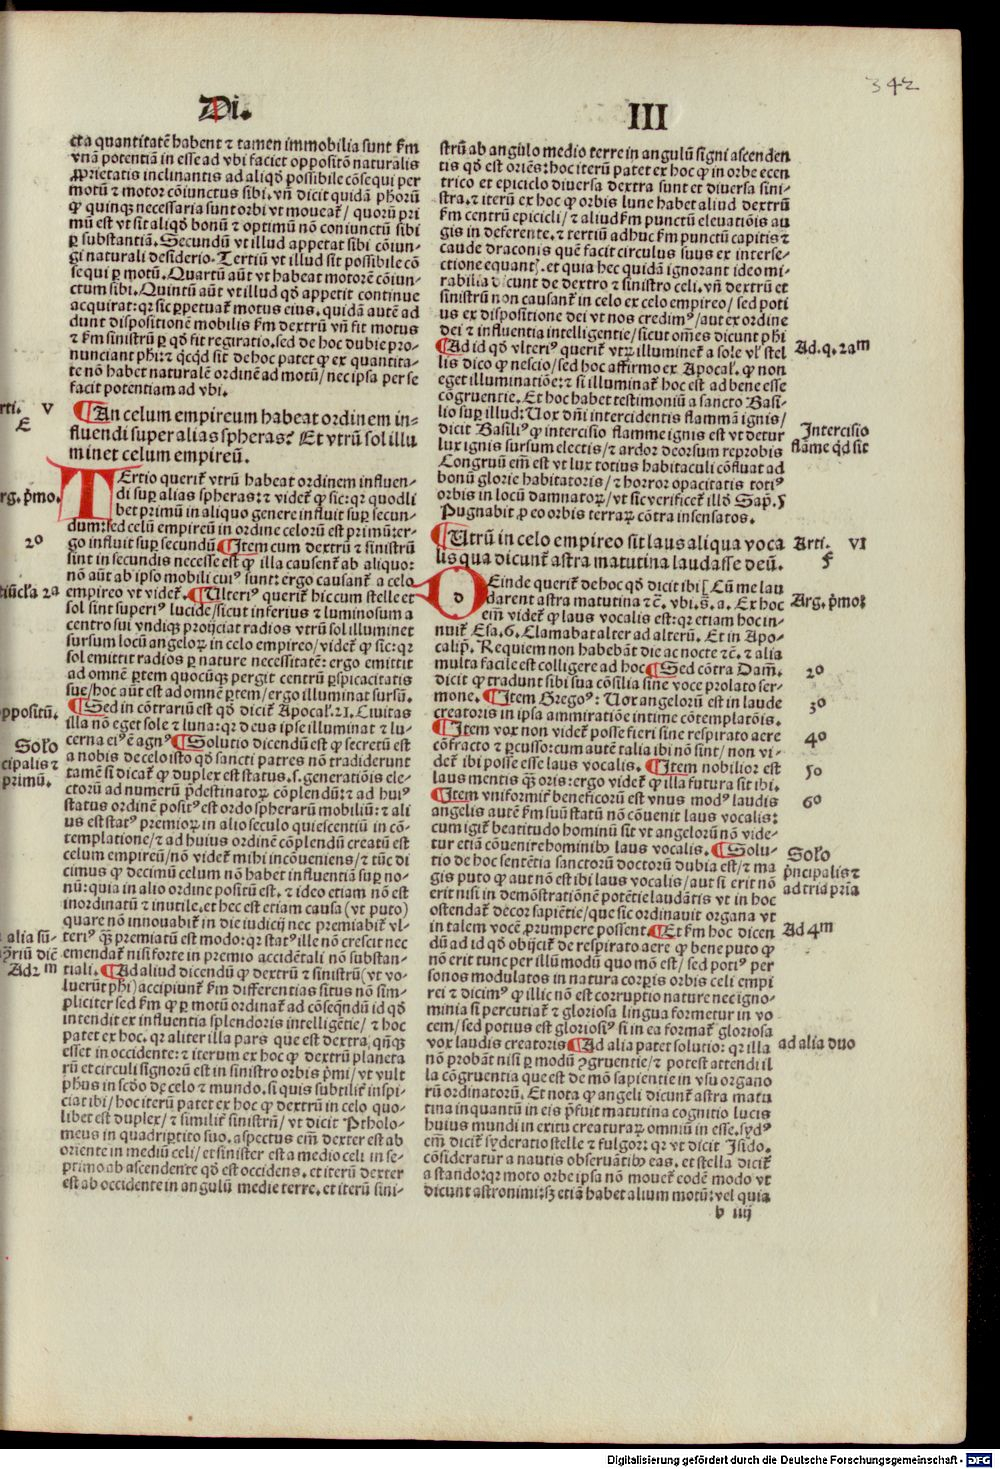 342
Di.
III
cta quantitatē habent ⁊ tamen immobilia sunt ẜm
vnā potentiā in esse ad vbi faciet oppositō naturalis
ꝓprietatis inclinantis ad aliqđ possibile cōsequi per
motū ⁊ motor cōiunctus sibi. vn̄ dicit quidā ph̄orū
ꝙ quinqꝫ necessaria sunt orbi vt moueat᷑ / quorū pri
mū est vt sit aliqđ bonū ⁊ optimū nō coniunctū sibi
ꝑ substantiā. Secundū vt illud appetat sibi cōiun-
gi naturali desiderio. Tertiū vt illud sit possibile cō
sequi ꝑ motū. Quartū aūt vt habeat motorē cōiun-
ctum sibi. Quintū aūt vt illud qđ appetit continue
acquirat: qꝛ sic ꝑpetuat᷑ motus eius. quidā autē ad
dunt dispositionē mobilis ẜm dextrū vn̄ fit motus
⁊ ẜm sinistrū ꝑ qđ fit regiratio. sed de hoc dubie pro-
nunciant phi: ⁊ qcqd sit de hoc patet ꝙ ex quantita-
te nō habet naturalē ordinē ad motū / nec ipsa per se
facit potentiam ad vbi.
rti. V
E
¶ An celum empireum habeat ordinem in-
fluendi super alias spheras? Et vtrū sol illu
minet celum empireū.
TErtio querit᷑ vtrū habeat ordinem influen-
di suꝑ alias spheras: ⁊ videt᷑ ꝙ sic: qꝛ quodli
bet primū in aliquo genere influit suꝑ secun-
dum: sed celū empireū in ordine celorū est primū: er-
go influit suꝑ secundū ¶ Item cum dextrū ⁊ sinistrū
sint in secundis necesse est ꝙ illa causent᷑ ab aliquo:
nō aūt ab ipso mobili cuiꝰ sunt: ergo causant᷑ a celo
empireo vt videt᷑. ¶ Ulteriꝰ querit᷑ hic cum stelle et
sol sint superiꝰ lucide / sicut inferius ⁊ luminosum a
centro sui vndiqꝫ proijciat radios vtrū sol illuminet
sursum locū angeloꝝ in celo empireo / videt᷑ ꝙ sic: qꝛ
sol emittit radios ꝑ nature necessitatē: ergo emittit
ad omnē ꝑtem quocūqꝫ pergit centrū ꝑspicacitatis
sue / hoc aūt est ad omnē ꝑtem / ergo illuminat sursū.
¶ Sed in cōtrariū est qđ dicit᷑ Apocal᷑. 21. Ciuitas
illa nō eget sole ⁊ luna: qꝛ deus ipse illuminat ⁊ lu-
cerna eiꝰ ē agnꝰ ¶ Solutio dicendū est ꝙ secretū est
a nobis de celo isto qđ sancti patres nō tradiderunt
tamē si dicat᷑ ꝙ duplex est status. s. generatiōis ele-
ctorū ad numerū p̄destinatoꝝ cōplendū: ⁊ ad huiꝰ
status ordinē positꝰ est ordo spherarū mobiliū: ⁊ ali
us est statꝰ premioꝝ in alio seculo quiescentiū in cō-
templatione / ⁊ ad huius ordinē cōplendū creatū est
celum empireū / nō videt᷑ mihi incōueniens / ⁊ tūc di
cimus ꝙ decimū celum nō habet influentiā suꝑ no-
nū: quia in alio ordine positū est. ⁊ ideo etiam nō est
inordinatū ⁊ inutile. et hec est etiam causa (vt puto)
quare nō innouabit᷑ in die iudicij nec premiabit᷑ vl-
teriꝰ qꝫ premiatū est modo: qꝛ statꝰ ille nō crescit nec
emendat᷑ nisi forte in premio accidētali nō substan-
tiali. ¶ Ad aliud dicendū ꝙ dextrū ⁊ sinistrū (vt vo-
luerūt phi) accipiunt᷑ ẜm differentias situs nō sim-
pliciter sed ẜm ꝙ ꝑ motū ordinat᷑ ad cōseqn̄dū id qđ
intendit ex influentia splendoris intelligētie / ⁊ hoc
patet ex hoc. qꝛ aliter illa pars que est dextra, qn̄qꝫ
esset in occidente: ⁊ iterum ex hoc ꝙ dextrū planeta
rū et circuli signorū est in sinistro orbis p̄mi / vt vult
phūs in scđo de celo ⁊ mundo. si quis subtilit᷑ inspi-
ciat ibi / hoc iterū patet ex hoc ꝙ dextrū in celo quo-
libet est duplex / ⁊ similit᷑ sinistrū / vt dicit Ptholo-
meus in quadriꝑtito suo. aspectus em̄ dexter est ab
oriente in mediū celi / et sinister est a medio celi in se-
ptimo ab ascendente qđ est occidens. et iterū dexter
est ab occidente in angulū medie terre. et iterū sini-
rg. p̄mo.
2º
tiūcl᷑a 2a
oppositū.
Solo
cipalis ⁊
primū.
alia sū-
riū dic̄
Ad 2m
strū ab angulo medio terre in angulū signi ascenden
tis qđ est oriēs: hoc iterū patet ex hoc ꝙ in orbe ecen
trico et epiciclo diuersa dextra sunt et diuersa sini-
stra. ⁊ iterū ex hoc ꝙ orbis lune habet aliud dextrū
ẜm centrū epicicli / ⁊ aliud ẜm punctū eleuatiōis au
gis in deferente. ⁊ tertiū adhuc ẜm punctū capitis ⁊
caude draconis quē facit circulus suus ex interse-
ctione equantꝭ. et quia hec quidā ignorant ideo mi-
rabilia dicunt de dextro ⁊ sinistro celi. vn̄ dextrū et
sinistrū non causant᷑ in celo ex celo empireo / sed poti
us ex dispositione dei vt nos credimꝰ / aut ex ordine
dei ⁊ influentia intelligentie / sicut om̄es dicunt phi
¶ Ad id qđ vlteriꝰ querit᷑ vtꝝ illuminet᷑ a sole vl᷑ stel
lis dico ꝙ nescio / sed hoc affirmo ex Apocal᷑. ꝙ non
eget illuminatiōe: ⁊ si illuminat᷑ hoc est ad bene esse
cōgruentie. Et hoc habet testimoniū a sancto Basi-
lio suꝑ illud: Uox dn̄i intercidentis flammā ignis /
dicit Basiliꝰ ꝙ intercisio flamme ignis est vt detur
lux ignis sursum electis / ⁊ ardor deorsum reprobis
Congruū em̄ est vt lux totius habitaculi cōfluat ad
bonū glorie habitatoris / ⁊ horror opacitatis totiꝰ
orbis in locū damnatoꝝ / vt sic verificet᷑ illđ Sap. 5
Pugnabit ꝓ eo orbis terraꝝ cōtra insensatos.
Ad. q. 2am
Intercisio
flāme qd sit
¶ Utrū in celo empireo sit laus aliqua voca
lis qua dicunt᷑ astra matutina laudasse deū.
Arti. VI
F
DEinde querit᷑ de hoc qđ dicit ibi ⸠ Cū me lau
darent astra matutina ⁊c̄. vbi. s̄. a. Ex hoc
em̄ videt᷑ ꝙ laus vocalis est: qꝛ etiam hoc in-
nuit᷑ Esa. 6. Clamabat alter ad alterū. Et in Apo-
calip̄. Requiem non habebāt die ac nocte ⁊c̄. ⁊ alia
multa facile est colligere ad hoc ¶ Sed cōtra Dam̄.
dicit ꝙ tradunt sibi sua cōsilia sine voce prolato ser-
mone. ¶ Item Gregoꝰ: Uox angelorū est in laude
creatoris in ipsa ammiratiōe intime cōtemplatōis.
¶ Item vox non videt᷑ posse fieri sine respirato aere
cōfracto ⁊ ꝑcusso: cum autē talia ibi nō sint / non vi-
det᷑ ibi posse esse laus vocalis. ¶ Item nobilior est
laus mentis qꝫ oris: ergo videt᷑ ꝙ illa futura sit ibi.
¶ Item vniformit᷑ beneficorū est vnus modꝰ laudis
angelis autē ẜm suū statū nō cōuenit laus vocalis:
cum igit᷑ beatitudo hominū sit vt angelorū nō vide-
tur etiā cōuenire hominibꝫ laus vocalis. ¶ Solu-
tio de hoc sentētia sanctorū doctorū dubia est / ⁊ ma
gis puto ꝙ aut nō est ibi laus vocalis / aut si erit nō
erit nisi in demōstrationē potētie laudātis vt in hoc
ostendat᷑ decor sapiētie / que sic ordinauit organa vt
in talem vocē ꝓrumpere possent. ¶ Et ẜm hoc dicen
dū ad id qđ obijcit᷑ de respirato aere ꝙ bene puto ꝙ
nō erit tunc per illū modū quo mō est / sed potiꝰ per
sonos modulatos in natura corꝑis orbis celi empi
rei ⁊ dicimꝰ ꝙ illic nō est corruptio nature nec igno-
minia si percutiat᷑ ⁊ gloriosa lingua formetur in vo
cem / sed potius est gloriosiꝰ si in ea format᷑ gloriosa
vox laudis creatoris ¶ Ad alia patet solutio: qꝛ illa
nō probāt nisi ꝑ modū ꝯgruentie / ⁊ potest attendi il
la cōgruentia que est de mō sapientie in vsu organo
rū ordinatorū. Et nota ꝙ angeli dicunt᷑ astra matu
tina inquantū in eis p̄fuit matutina cognitio lucis
huius mundi in exitu creaturaꝝ omniū in esse. sydꝰ
em̄ dicit᷑ syderatio stelle ⁊ fulgor: qꝛ vt dicit Isido.
cōsideratur a nautis obseruātibꝫ eas. et stella dicit᷑
a stando: qꝛ moto orbe ipsa nō mouet᷑ eodē modo vt
dicunt astronimi: sꝫ etiā habet alium motū: vel quia
Arg. p̄mo:
2º
3º
4º
5º
6º
Solo
p̄ncipalis ⁊
ad tria p̄ria
Ad 4m
ad alia duo
b iiij
Digitalisierung gefördert durch die Deutsche Forschungsgemeinschaft - DFG